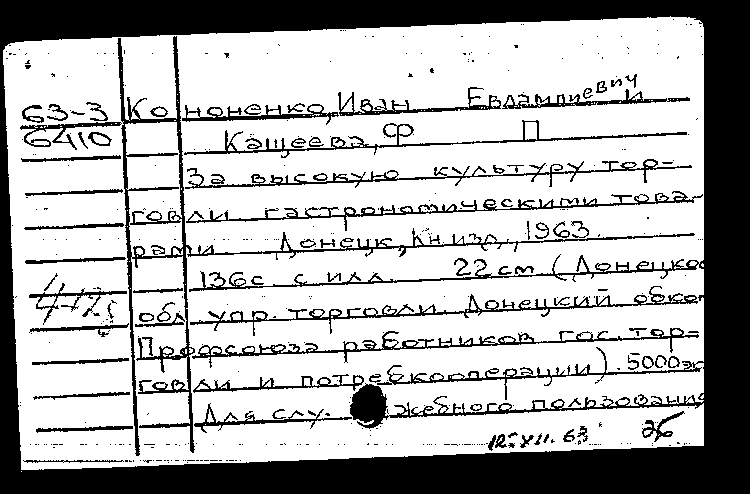 63-3 Кононенко, Иван Евлампиевич и
6410 Кащеева, Ф П
За высокую культуру тор-
говли гастрономическими това-
рами Донецк, Кн.изд., 1963.
136с. с илл. 22см (Донецкое
обл упр. торговли. Донецкий обком
Профсоюза работников гос. тор-
говли и потребкооперации). 5000эк
Для служебного пользования
12.XII.63 26